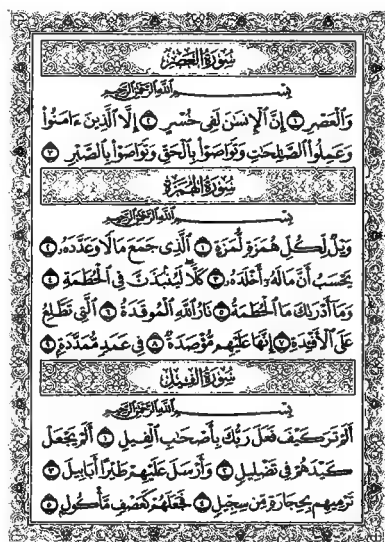 سُورَةُ العَصْرِ
بِسْمِ اللَّهِ الرَّحْمَٰنِ الرَّحِيمِ
وَالْعَصْرِ ۝١ إِنَّ الْإِنسَانَ لَفِي خُسْرٍ ۝٢ إِلَّا الَّذِينَ ءَامَنُوا
وَعَمِلُوا الصَّالِحَاتِ وَتَوَاصَوْا بِالْحَقِّ وَتَوَاصَوْا بِالصَّبْرِ ۝٣
سُورَةُ الهُمَزَةِ
بِسْمِ اللَّهِ الرَّحْمَٰنِ الرَّحِيمِ
وَيْلٌ لِّكُلِّ هُمَزَةٍ لُّمَزَةٍ ۝١ الَّذِي جَمَعَ مَالًا وَعَدَّدَهُ ۝٢
يَحْسَبُ أَنَّ مَالَهُ أَخْلَدَهُ ۝٣ كَلَّا لَيُنبَذَنَّ فِي الْحُطَمَةِ ۝٤
وَمَا أَدْرَاكَ مَا الْحُطَمَةُ ۝٥ نَارُ اللَّهِ الْمُوقَدَةُ ۝٦ الَّتِي تَطَّلِعُ
عَلَى الْأَفْئِدَةِ ۝٧ إِنَّهَا عَلَيْهِم مُّؤْصَدَةٌ ۝٨ فِي عَمَدٍ مُّمَدَّدَةٍ ۝٩
سُورَةُ الفِيلِ
بِسْمِ اللَّهِ الرَّحْمَٰنِ الرَّحِيمِ
أَلَمْ تَرَ كَيْفَ فَعَلَ رَبُّكَ بِأَصْحَابِ الْفِيلِ ۝١ أَلَمْ يَجْعَلْ
كَيْدَهُمْ فِي تَضْلِيلٍ ۝٢ وَأَرْسَلَ عَلَيْهِمْ طَيْرًا أَبَابِيلَ ۝٣
تَرْمِيهِم بِحِجَارَةٍ مِّن سِجِّيلٍ ۝٤ فَجَعَلَهُمْ كَعَصْفٍ مَّأْكُولٍ ۝٥